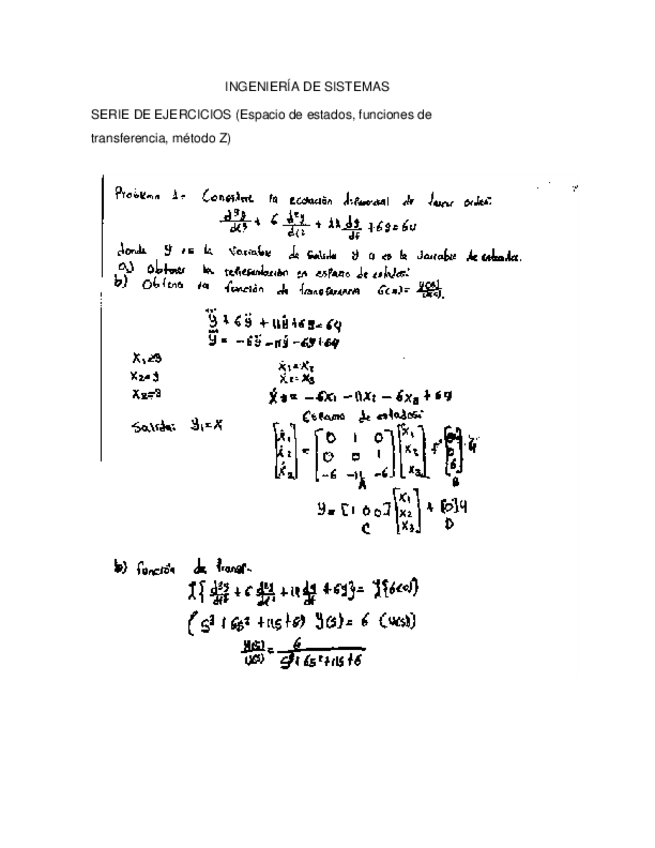 INGENIERÍA DE SISTEMAS
SERIE DE EJERCICIOS (Espacio de estados, funciones de
transferencia, método Z)
Problema 1:- Considere la ecuación diferencial de tercer orden:
d³y/dt³ + 6 d²y/dt² + 11 dy/dt + 6y = 6u
donde y es la variable de salida y u es la variable de entrada.
a) obtener la representación en espacio de estados:
b) Obtener la función de transferencia G(s) = Y(s)/U(s).
y⃛ + 6ÿ + 11ẏ + 6y = 6u
y⃛ = -6ÿ - 11ẏ - 6y + 6u
X₁=y
X₂=ẏ
ẋ₁ = x₂
ẋ₂ = x₃
ẋ₃ = -6x₁ - 11x₂ - 6x₃ + 6u
Salida: y₁=x
Espacio de estados:
[ẋ₁ ẋ₂ ẋ₃] = [0 1 0; 0 0 1; -6 -11 -6] [x₁ x₂ x₃] + [0 0 6] u
A B
y = [1 0 0] [x₁ x₂ x₃] + [0] u
C D
b) función de transf.
ℒ{d³y/dt³ + 6 d²y/dt² + 11 dy/dt + 6y} = ℒ{6u(t)}
(s³ + 6s² + 11s + 6) Y(s) = 6 (U(s))
Y(s)/U(s) = 6/(s³ + 6s² + 11s + 6)